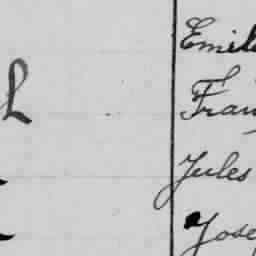 Emil
Fran
Jules
Jose